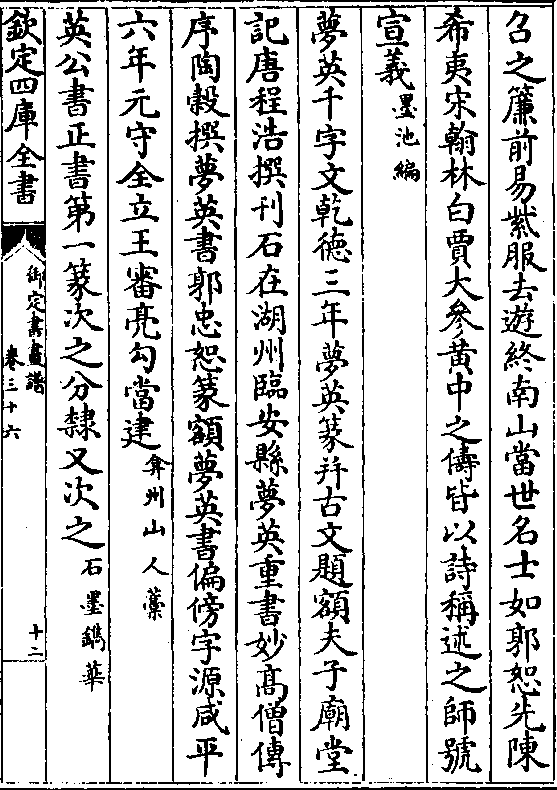 召之簾前易紫服去遊終南山當世名士如郭恕先陳
希夷宋翰林白賈大參黃中之儔皆以詩稱述之師號
宣義墨池編
夢英千字文乾德三年夢英篆幷古文題額夫子廟堂
記唐程浩撰刊石在湖州臨安縣夢英重書妙高僧傳
序陶穀撰夢英書郭忠恕篆額夢英書偏傍字源咸平
六年元守全立王審亮勾當建弇州山人藁
英公書正書第一篆次之分隸又次之石墨鐫華
欽定四庫全書
御定書畫譜
卷三十六
十二